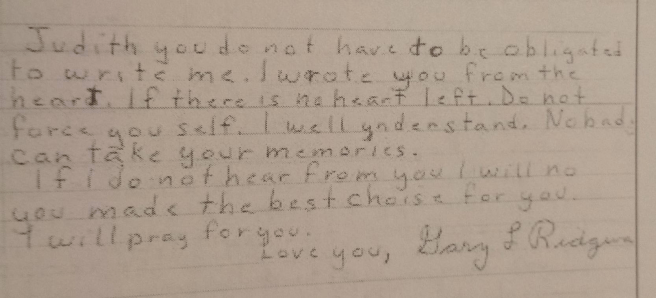 Judith you do not have to be obligated
to write me. I wrote you from the
heart. If there is no heart left. Do not
force you self. I well ynderstand. Nobody
can take your memories.
If i do not hear from you I will no
you made the best choise for you.
I will pray for you.
Love you, Gary L Ridgway